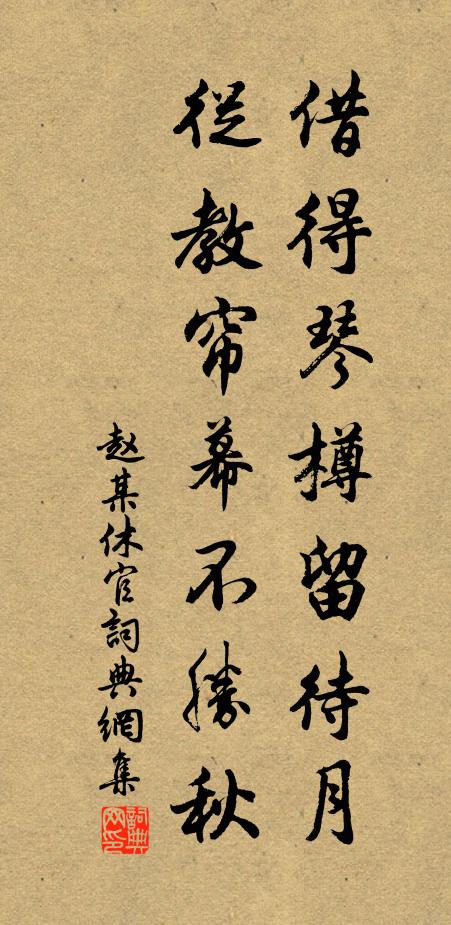 借得琴樽留待月
從教帘幕不勝秋
赵某休官詞典網集
詞典網印